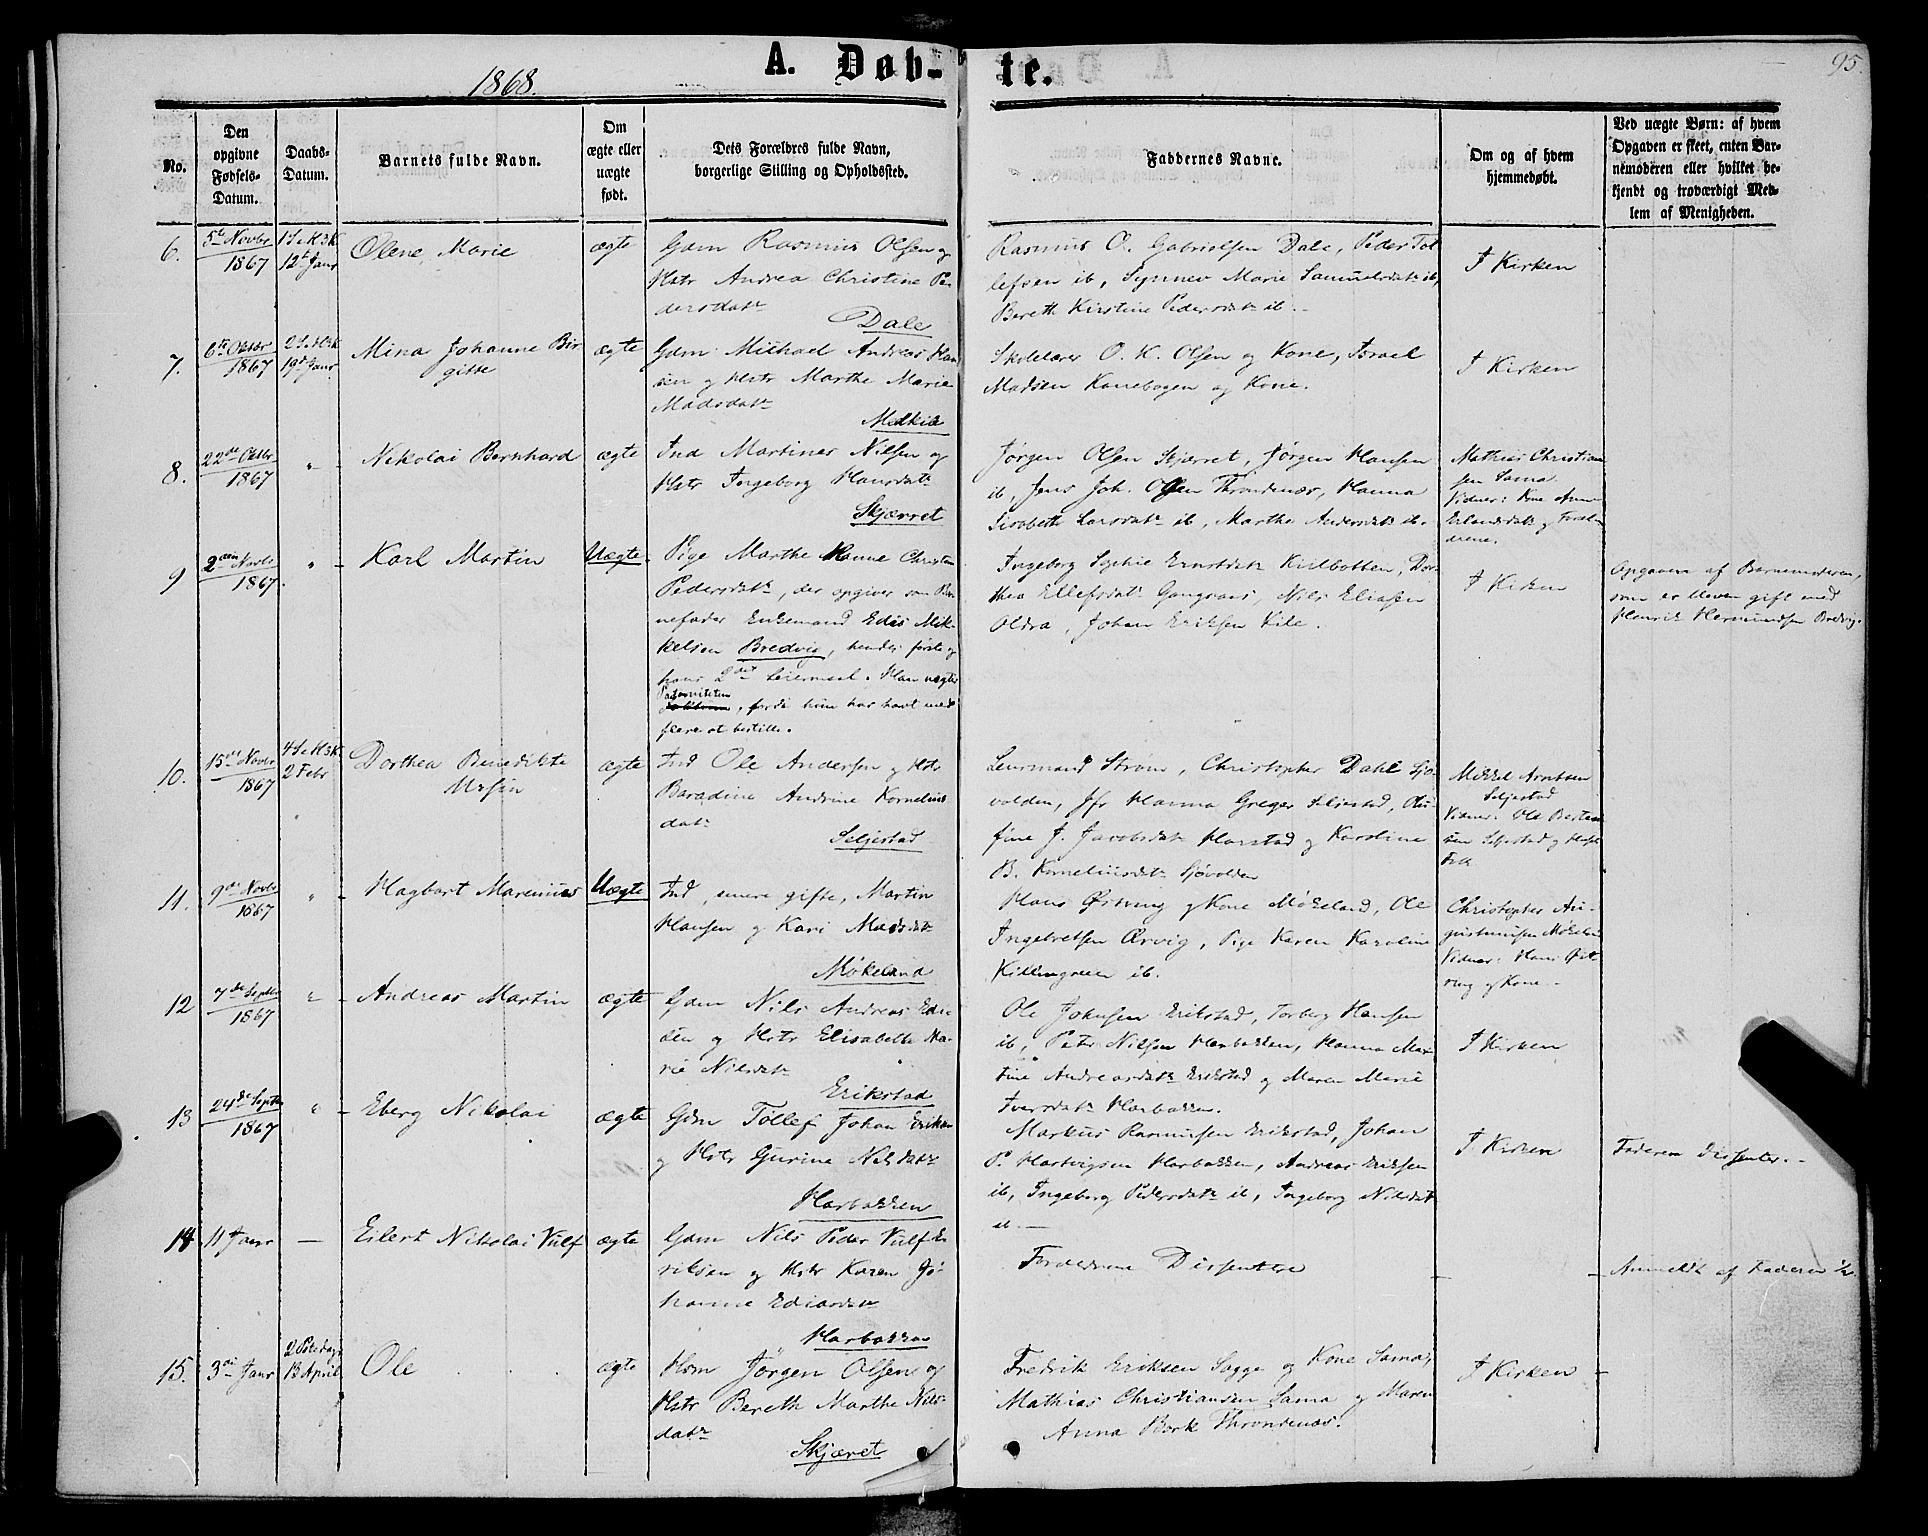 A. Døb-te.
95.
1868.
No.
Den opgivne Fødsels-Datum.
Daabs-Datum.
Barnets fulde Navn.
Om ægte eller uægte født.
Dets Forældres fulde Navn, borgerlige Stilling og Opholdssted.
Faddernes Navne.
Om og af hvem hjemmedøbt.
Ved uægte Børn: af hvem Opgaven er skeet, enten Barnemoderen eller hvilket bekjendt og troværdigt Medlem af Menigheden.
6.
5te Novbr 1867
12te Janr
Olene Marie
ægte
Gdm Rasmus Olsen og
Hstr Andrea Christine Pe-
dersdatr
Dale
Rasmus O. Gabrielsen Dale, Peder Tol
lefsen ib, Synnev Marie Samuelsdatr ib,
Bereth Kirstine Pedersdatr ib.
I Kirken
7.
6te Oktbr 1867
19de Janr
Mina Johanne Bir
gitte
ægte
Gdm Michael Andreas Han
sen og Hstr Marthe Marie
Madsdatr
Melkiæ
Skolelærer O. K. Olsen og Kone, Israel
Madsen Kanebogen og Kone.
I Kirken
8.
22de Oktbr 1867
Nikolai Bernhard
ægte
Ind Martines Nilsen og
Hstr Ingeborg Hansdatr
Skjærret
Jørgen Olsen Skjærret, Jørgen Hansen
ib, Jens Joh. Olsen Throndenæs, Hanna
Lisabeth Larsdatr ib, Marthe Andersdatr ib.
Mathias Christian
sen Sama
Vidner: Kone
Erlandsdatr og Foræl-
drene.
9
2den Novbr 1867.
Karl Martin
Uægte.
Pige Marthe Hanne Christine
Pedersdatr, der opgiver som Bar
nefader Enkemand Edis Mik-
kelsen Bredvig, hendes første og
hans 2det Leiermaal. Han nægter
Paterniteten, fordi hun har havt med
flere at bestille.
Ingeborg Sophie Ernstdatr Kielbotten, Dor
thea Ellefsdatr Gangsaas, Nils Eliasen
Oldra, Johan Eriksen Kile.
I Kirken
Opgaven af Barnemoderen,
som er bleven gift med
Henrik Hermundsen Bredvig.
10.
15de Novbr 1867
2 Febr
Dorthea Benedikte
Ursin
ægte
Ind Ole Andersen og Hstr
Beradine Andrine Kornelius
datr
Seljestad
Lensmand Strøm, Christopher Dahl Sjø-
volden, Jfr Hanna Greger Seljestad, Olu-
fine J. Jacobsdatr Harstad og Karoline
B. Korneliusdatr Sjøvolden
Mikkel Arntsen
Seljestad
Vidner: Ole Bertan
sen Seljestad og
Folk
11.
9de Novbr 1867
Hagbart Marenius
Uægte
Ind, senere gifte, Martin
Hansen og Kari Madsdatr
Møkeland
Hans Østving og Kone Møkeland, Ole
Ingebretsen Ervig, Pige Karen Karoline
Killingreen ib.
Christopher Au-
gustinusen Møkeland
Vidner: Hans Øst-
ving og Kone.
12
7de Septbr 1867
Andreas Martin
ægte
Gdm Nils Andreas Edis-
sen og Hstr Elisabeth Ma-
rie Nilsdatr
Erikstad
Ole Johnsen Erikstad, Torberg Hansen
ib, Peter Nilsen Harbakken, Hanna Mar-
tine Andreasdatr Erikstad og Maren Marie
Iversdatr Harbakken.
I Kirken
13
24de Septbr 1867
Eberg Nikolai
ægte
Gdm Tollef Johan Eriksen
og Hstr Gurine Nilsdatr
Harbakken
Markus Rasmusen Erikstad, Johan
P. Hartvigsen Harbakken, Andreas Eriksen
ib, Ingeborg Pedersdatr ib, Ingeborg Nilsdatr
ib.
I Kirken
Faderen Dissenter.
14
11 Janr
Eilert Nikolai Vulf
ægte
Gdm Nils Peder Vulf E-
riksen og Hstr Karen Jo-
hanne Ediasdatr
Harbakken
Forældrene Dissentere
Anmeldt af Faderen
15.
3die Janr
2 Paaskedag
13 April
Ole
ægte
Hsm Jørgen Olsen og
Hstr Bereth Marthe Nils-
datr
Skjæret
Fredrik Eriksen Sagge og Kone Sama,
Mathias Christiansen Sama og Maren
Anna Bork Throndenæs.
I Kirken